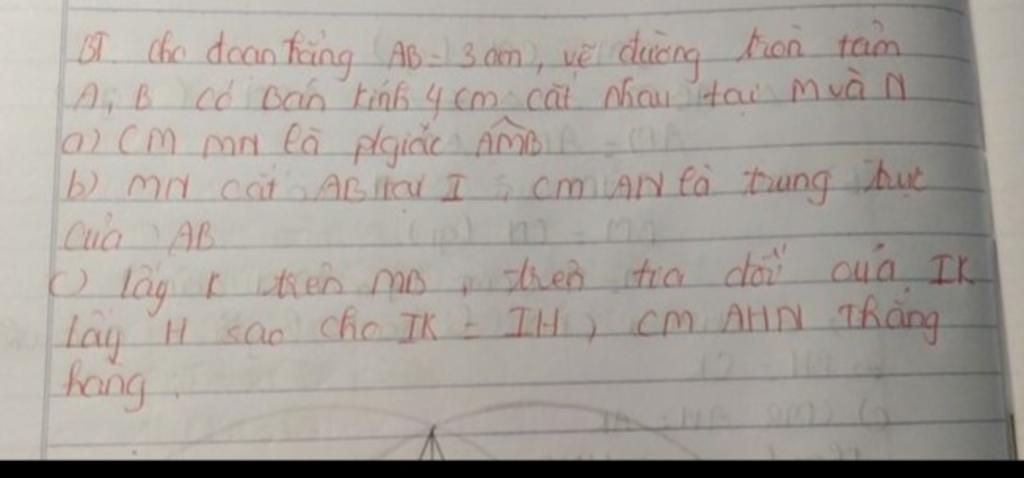 BT. Cho đoan thẳng AB = 3 cm, vẽ đường tròn tâm
A, B có bán kính 4 cm cắt nhau tại M và N
a) CM MN là p/giác AMB
b) MN cắt AB tại I, CM AN là trung trực
của AB
c) lấy K trên MB, trên tia đối của IK
lấy H sao cho IK = IH, CM AHN Thẳng
hàng.